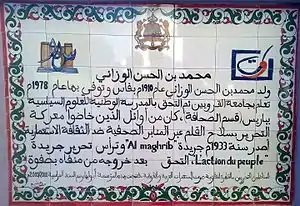 محمد بن الحسن الوزاني
ولد محمد بن الحسن الوزاني عام 1910م بفاس وتوفي بها عام 1978م
تعلم بجامعة القرويين ثم التحق بالمدرسة الوطنية للعلوم السياسية
بباريس قسم الصحافة، كان من أوائل الذين خاضوا معركة
التحرير بسلاح القلم عبر المنابر الصحفية ضد الثقافة الاستعمارية
أصدر سنة 1933م جريدة "Al maghrib" وترأس تحرير جريدة
"L'action du peuple"، التحق بعد خروجه من منفاه بصفوة